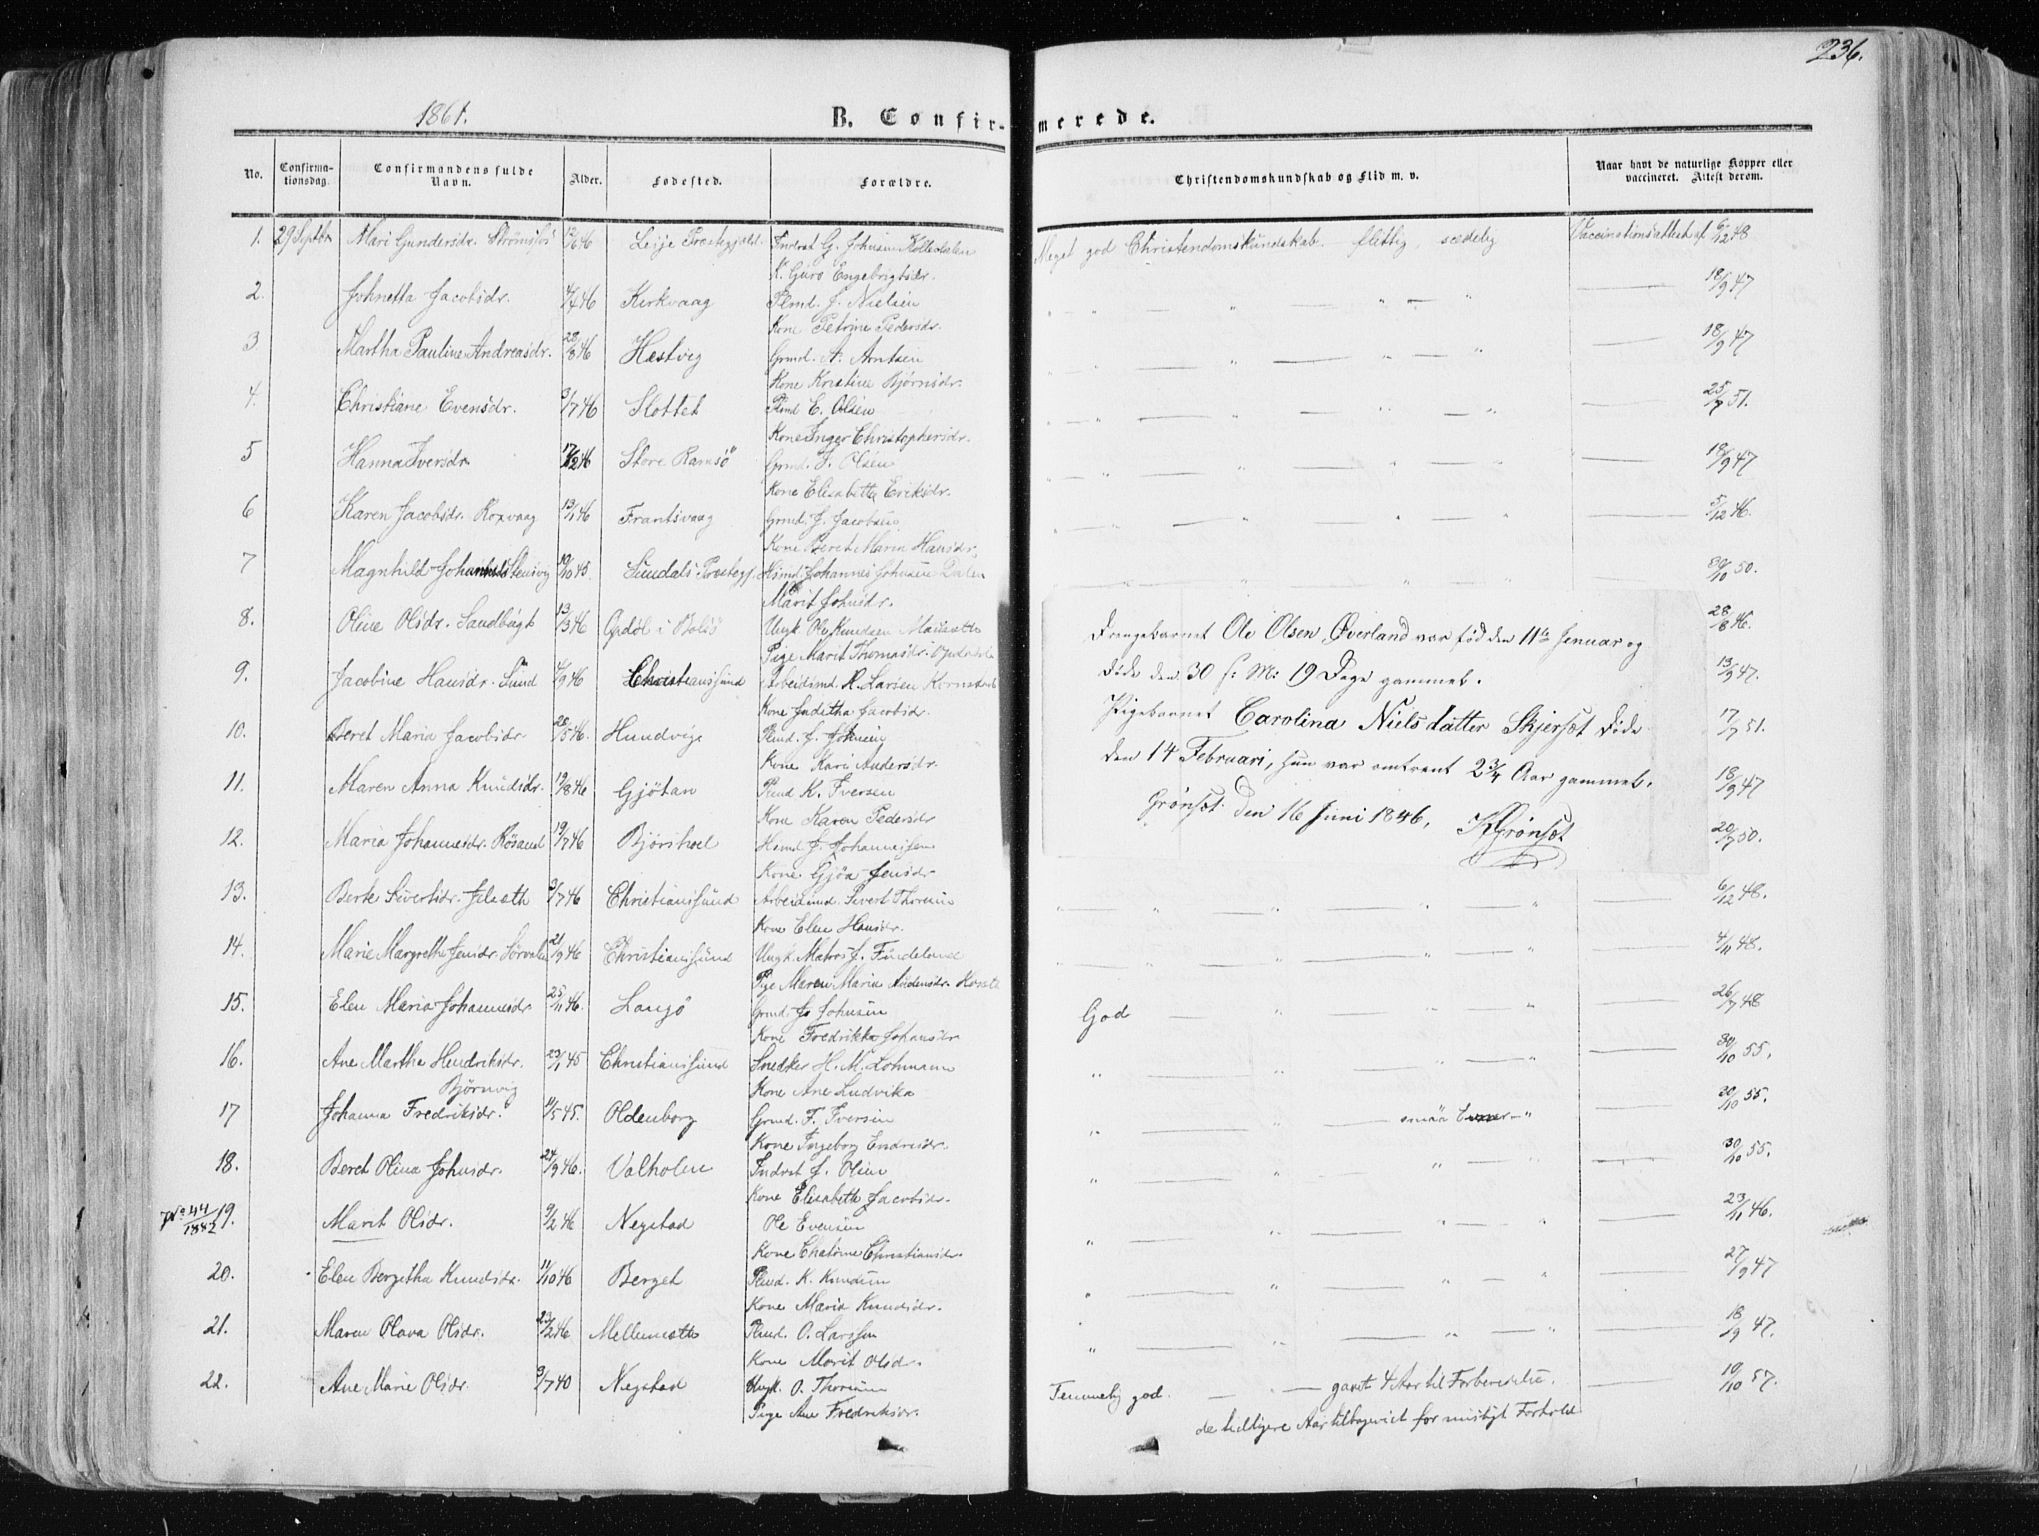 236.
1861. B. Confirmerede.
No. Confirmationsdag. Confirmandens fulde Navn. Alder. Fødested. Forældre. Christendomskundskab og Flid m. v. Naar havt de naturlige Kopper eller vaccineret. Attest derom.
1. 29 Septbr Mari Gundersdr. Strømsøs 12/6 46 Leije Præstegjæld. Indrst G. Johnsen Meget god Christendomskundskab. flittig, sædelig Vaccinationsattest af 6/12 48
K. Guro Engebrigtsdr.
2. Johnetta Jacobsdr. 4/4 46 Kirkvaag Plmd. J. Nielsen 18/9 47
Kone Petrine Pedersdr.
3 Martha Pauline Andreasdr. 28/8 46 Hestvig Grmd. A. Arntsen 18/9 47
Kone Kristine Bjørnsdr.
4. Christiane Evensdr. 3/7 46 Slottet Plmd E. Olsen 25/7 51.
Kone Inger Christophersdr.
5 Hanna Iversdr. 17/12 46 Store Ramsö Grmd. I. Olsen 18/9 47
Kone Elisabeth Eriksdr.
6 Karen Jacobsdr. Roxvaag 13/1 46 Frantsvaag Grmd. J. Jacobsen 5/12 46.
Kone Beret Maria Hansdr.
7 Magnhild Stensvig 19/10 45. Sundals Præstegj. Hsmd. Johannes Johnsen Dalen 30/10 50.
Marit Johnsdr.
8. Oline Olsdr. Sandbugt 13/3 46 Opdöl i Bolsö Ungk. Ole Knudsen 28/8 46.
Pige Marit Thomasdr.
9. Jacobine Hansdr. Sund 4/9 46 Christianssund Arbeidsmd. H. Larsen 13/9 47.
Kone Juditha Jacobsdr.
10. Beret Maria Jacobsdr 28/5 46. Hundvige Plmd. J. Johnsen 17/7 51.
Kone Kari Andersdr.
11. Maren Anna Knudsdr. 19/8 46 Gjötan Plmd K. Iversen 18/9 47
Kone Karen Pedersdr
12. Maria Johannesdr. Rösand 19/7 46 Hsmd. J. Johannessen 20/7 50.
Kone Gjöa Jensdr.
Drengebarnet Ole Olsen Øverland var född den 11te Januar og
døde den 30 s: M: 19 Dage gammel.
Pigebarnet Carolina Nielsdatter Skjersøt døde
den 14 Februari, hun var omtrent 2 3/4 Aar gammel.
Grønset den 16 Juni 1846, KGrønset
13. Berte Sivertsdr. 3/7 46 Christianssund Arbeidsmd. Sivert Thorsen 6/12 48.
Kone Elen Hansdr.
14. Marie Margrethe Jensdr. 21/9 46 Christianssund Ungk. Matros J. 4/11 48.
Pige Maren Maria Andersdr.
15. Elen Maria Johannesdr. 25/11 46. Langö Grmd. Js Johnsen God 26/7 48
Kone Fredrikka Johansdr
16. Ane Martha Hendriksdr. 23/1 45 Christianssund Snedker H. M. Lohmann 30/10 55.
Björnvig Kone Ane Ludvika
17 Johanna Fredriksdr. 11/5 45. Oldenborg Grmd. F. Iversen smaa Evner 30/10 55.
Kone Ingeborg Endresdr.
18. Beret Olina Johnsdr. 24/9 46. Valholen Indrst J. Olsen 30/10 55.
Kone Elisabeth Jacobsdr.
No 44/1882 19. Marit Olsdr. 9/2 46 Negstad Ole Evensen 23/11 46.
Kone Christiansdr.
20. Elen Bergitha Knudsdr. 11/10 46 Berget Plmd. K. Knudsen 27/9 47
Kone Maria Knudsdr.
21. Maren Olava Olsdr. 23/2 46 Plmd. O. Larssen 18/9 47.
Kone Marit Olsdr.
22. Ane Marie Olsdr. 3/7 40 Negstad Ungk. O. Thorsen Temmelig god. gaaet 4 Aar til Forberedelse. 10/10 57.
Pige Ane Fredriksdr. de tidligere Aar tilbageviist for usselt Forhold